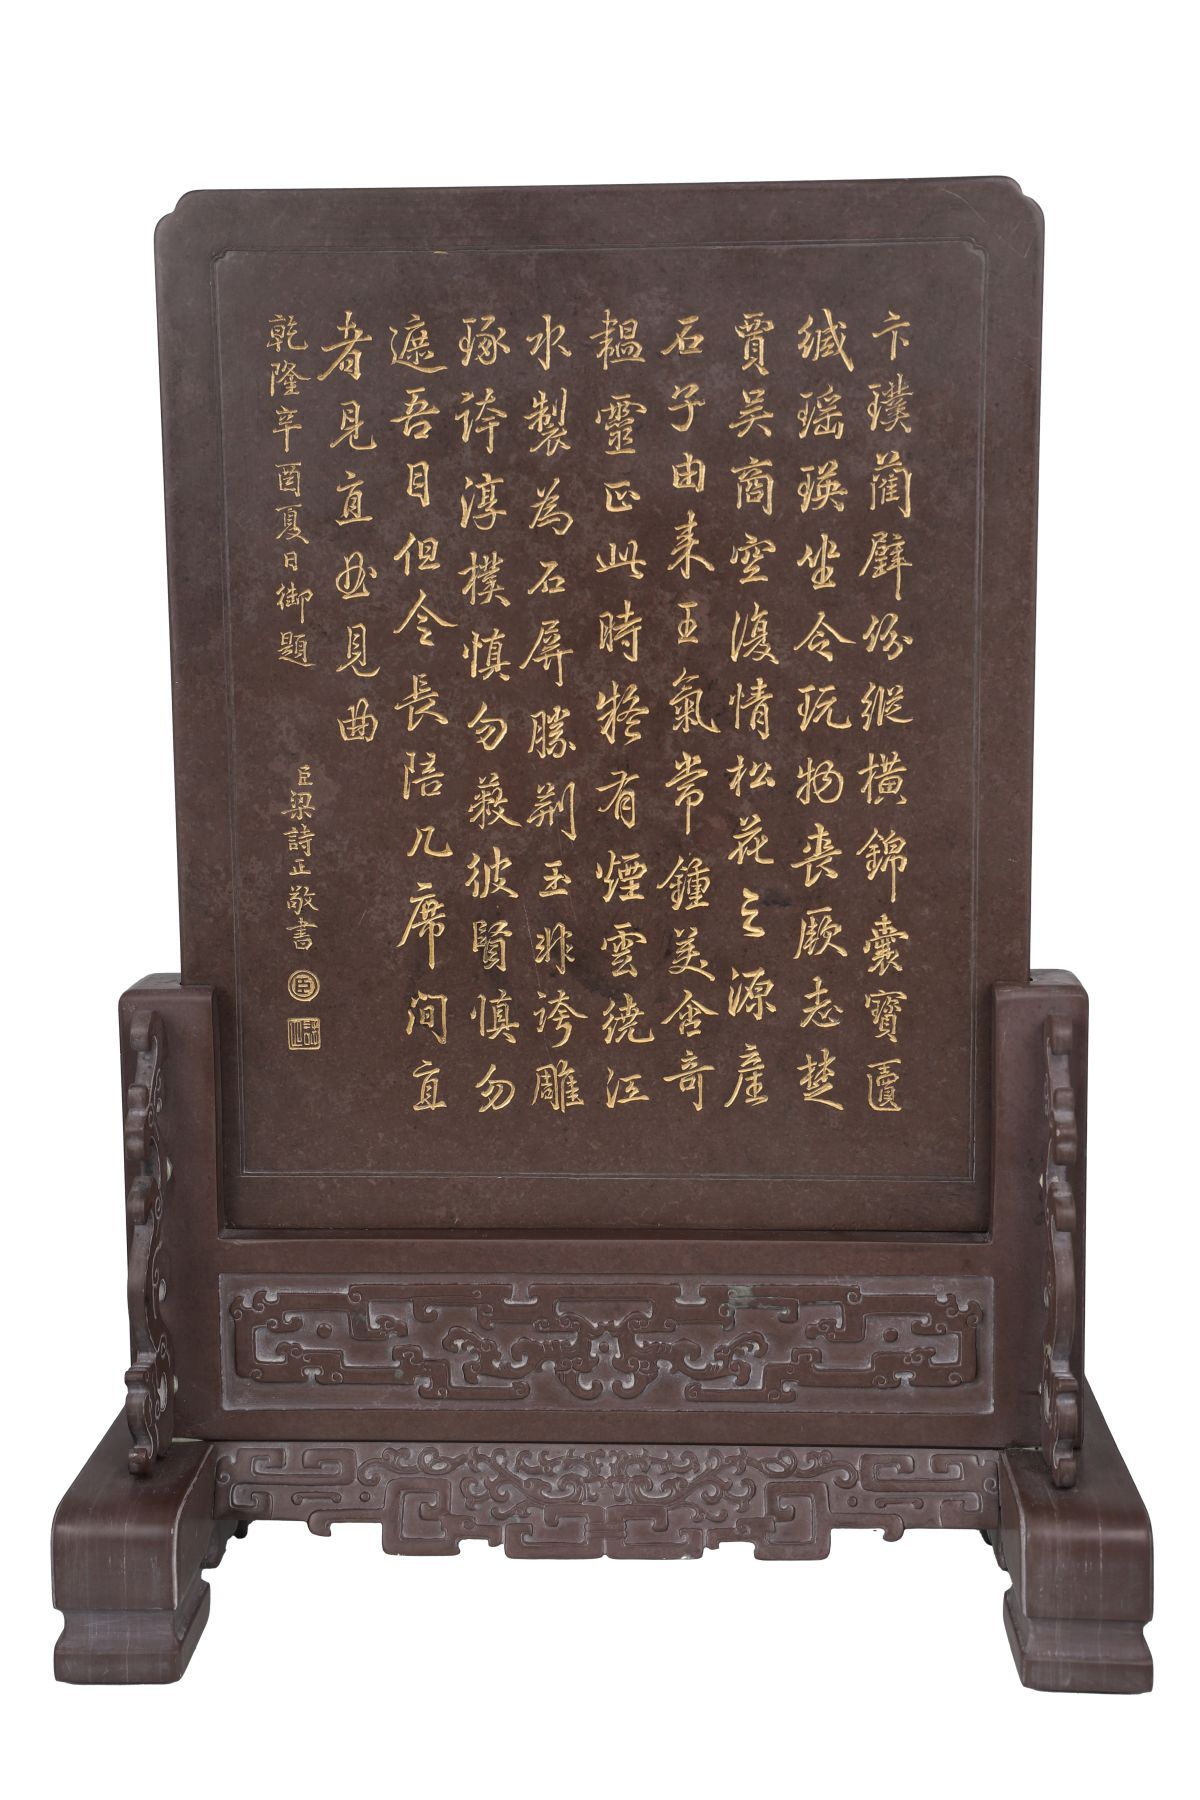 卞璞藺璧紛縱橫錦囊寶匵
緘瑤瑛坐令玩物喪厥志楚
賈吳商空復情松花之源產
石子由来王氣常鍾美含奇
韞靈正此時猶有煙雲繞江
水製為石屏勝荆玉非誇雕
琢誇淳樸慎勿蔽彼賢慎勿
遮吾目但令長陪几席間直
者見直曲見曲
乾隆辛酉夏日御題
臣梁詩正敬書
臣
詩正